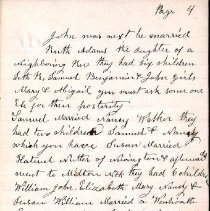 Page 4
John was next he married
Ruth Adams the daughter of a
neighboring they had six children
Seth Samuel Benjamin & John girls
Mary & Abigail you must ask some one
els for their posterity
Samuel Married Nancy Walker they
had two children Samuel & Nancy
which you have Susan Married
Nutter of Newington & afterwards
went to Milton NH they had 6 children
William John Elizabeth Mary Nancy &
Susan William Married a Wentworth